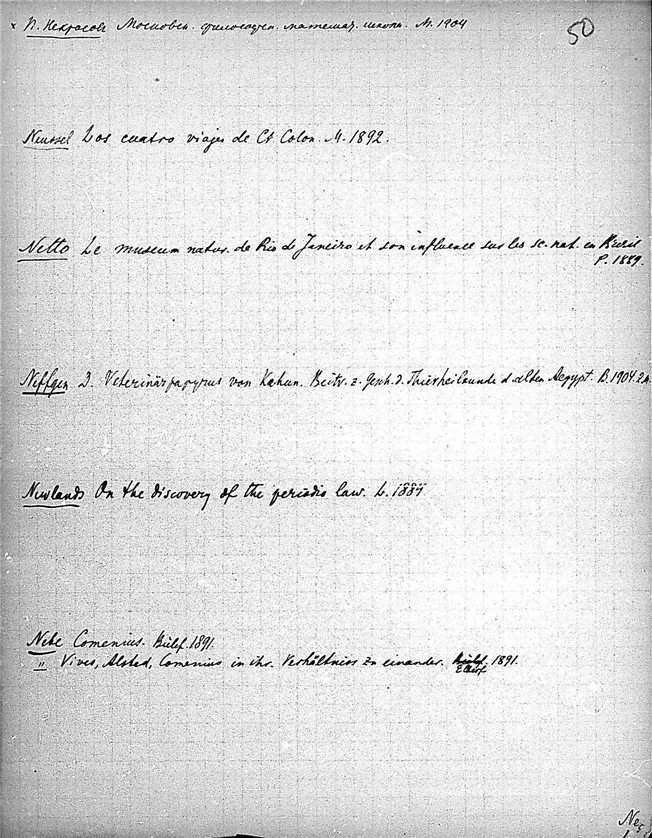 × П. Некрасовъ Московск. философск. математ. школа. М. 1904
50
Neussel Los cuatro viajes de Ct Colon. M. 1892.
Netto Le museum natur. de Rio de Janeiro et son influence sur les sc. nat. en Brésil
P. 1889.
Neffgen D. Veterinärpapyrus von Kahun. Beitr. z. Gesch. d. Thierheilkunde d. alten Aegypt. B. 1904. 2 M.
Newlands On the discovery of the periodic law. L. 1884
Nebe Comenius. Bielef. 1891.
" Vives, Alsted, Comenius in ihr. Verhältniss zu einander. 1891.
Elberf.